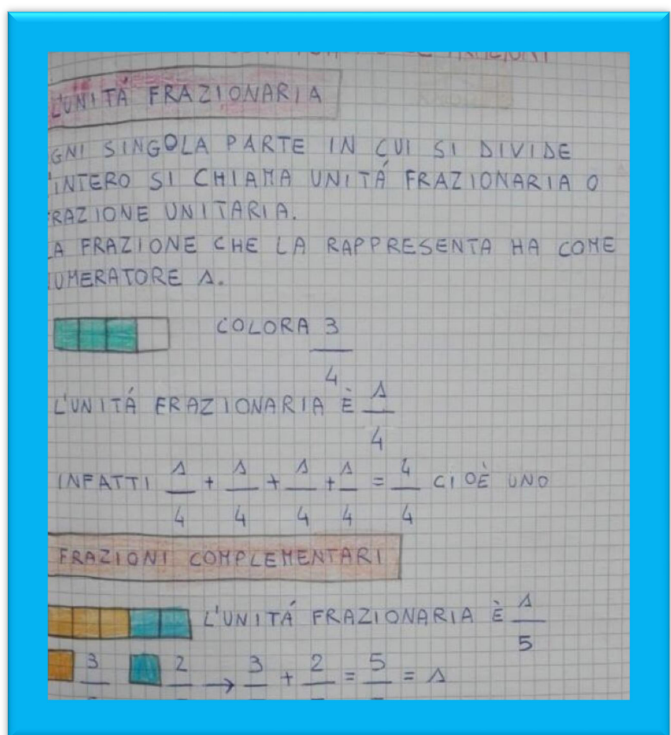 L'UNITÁ FRAZIONARIA
GNI SINGOLA PARTE IN CUI SI DIVIDE
'INTERO SI CHIAMA UNITÁ FRAZIONARIA O
RAZIONE UNITARIA.
A FRAZIONE CHE LA RAPPRESENTA HA COME
UMERATORE 1.
COLORA 3/4
L'UNITÁ FRAZIONARIA È 1/4
INFATTI 1/4 + 1/4 + 1/4 + 1/4 = 4/4 CIOÈ UNO
FRAZIONI COMPLEMENTARI
L'UNITÁ FRAZIONARIA È 1/5
3 2 → 3 + 2 = 5 = 1